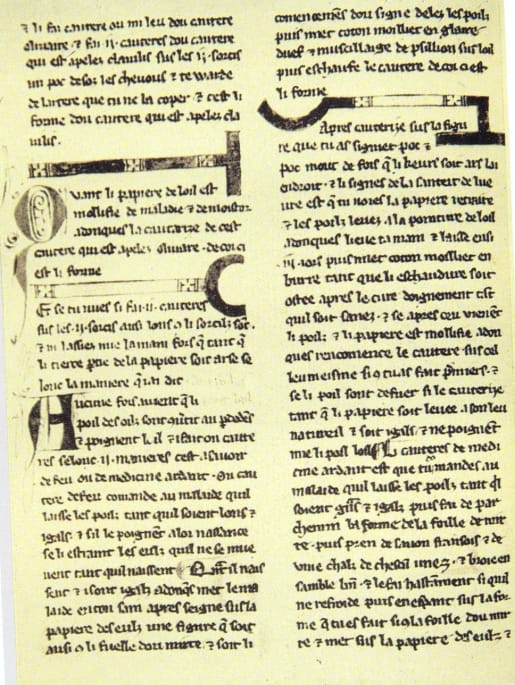 ⁊ li fai cautere ou mi leu dou cautere
olivaire ⁊ fai .ii. cauteres dou cautere
qui est apelez clavilis sus les .ii. sorcis
un poc desoz les chevous ⁊ te warde
de lartere que tu ne la coper ⁊ cest li
forme dou cautere qui est apelez cla
vilis.
Quant li papiere de loil est
mollifie de maladie ⁊ de moistor
adonques la cauterize de cest
cautere qui est apelez olivaire de coi ci
est li forme
Et se tu vues si fai .ii. cauteres
sus les .ii. sorcis
li tierce ptie de la papiere soit arse se
lonc la maniere
Aucune fois avient q̃ li
poil des oilz sont
⁊ poignent l oil ⁊ i fait on caute
res selonc .ii. manieres cest a savoir
de feu ou de medicine ardant. On cau
tere de feu comande au malade quil
laisse les poilz tant quil soient lons ⁊
igalz ⁊ sil le poignēt a lor naissance
se li estraint les eulz quil ne se mue
vent tant quil naissent
sent ⁊ i sont igalz adonq̃s met le ma
laide en ton sain apres seigne sus la
papiere des eulz une figure q̃ soit
ausi q̃ li fuelle dou mirte ⁊ soit li
comencemēs dou signe delez les poilz
puis met coton mollier en glaire
duef ⁊ muscillaige de psillion sus loil
puis eschaufe le cautere de coi ci est
li forme
Apres cauterize sus la figu
re que tu as signiet poc ⁊
poc mout de fois q̃ li keurs soit ars la
endroit ⁊ li signes de la santeit de lue
vre est q̃ tu voies la papiere retraite
⁊ les poilz levez a la pointure de loil
adonques lieve ta main ⁊ laisse ensi
.iii. jors puis met coton mollier en
burre tant que li eschaudure soit
ostee apres le cure doignement
quil soit sanez ⁊ se apres ce vienēt
li poilz ⁊ li papiere est mollifie adon
ques rencomence le cautere sus cel
leu meisme si q̃ tu as fait p̃miers ⁊
se li poil sont defuer si le cauterize
tant q̃ li papiere soit levee a son leu
natureil ⁊ soit igalz ⁊ ne poignēt
mie li poil loil Li cauteres de medi
cine ardant est que tu mandes au
malaide quil laisse les poilz tant q̃l
soient ⁊ igalz puis fai de par
chemin la forme de la foille de mir
te puis pren de savon fransois ⁊ de
vive chalz de chescū unez ⁊ broie en
samble bn̄ ⁊ le fai hastivement si quil
ne refroide puis en espant sus la for
me q̃ tu es fait si q̃ la foille dou mir
te ⁊ met sus la papiere des eulz ⁊